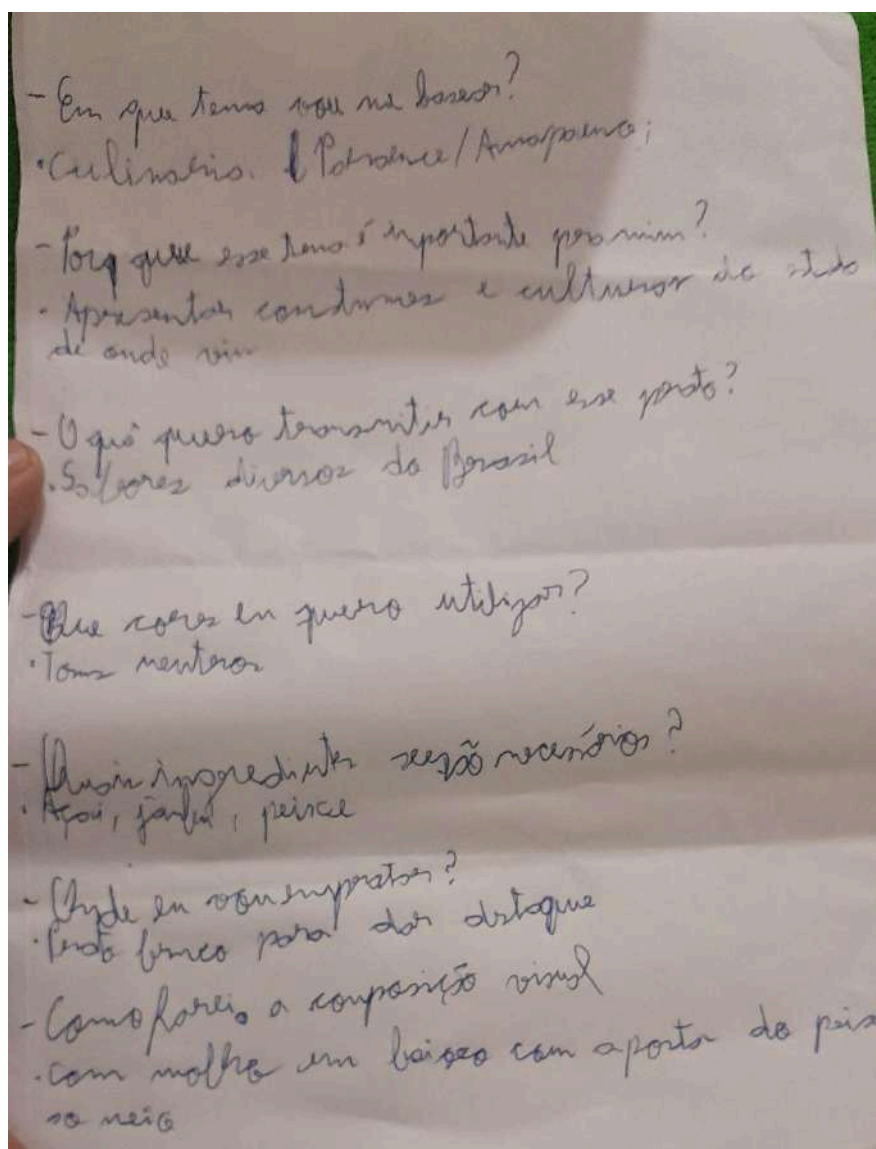 - Em que tema vou me basear?
• Culinária. Paraense/Amapaense;
- Porq que esse tema é importante para mim?
• Apresentar costumes e culturas do
de onde vim
- O quê quero transmitir com esse prato?
• Sabores diversos do Brasil
- Que cores eu quero utilizar?
• Tons neutros
- Quais ingredientes serão necessários?
• Açai, jambu, peixe
- Onde eu vou empratar?
• Prato branco para dar destaque
- Como farei a composição visual
• com molho em baixo com a posta do
no meio